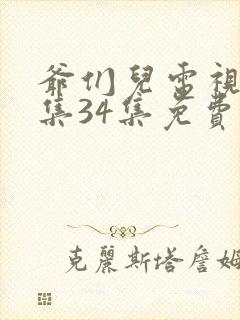 爷们儿電視
集34集免費
克麗斯塔詹姆